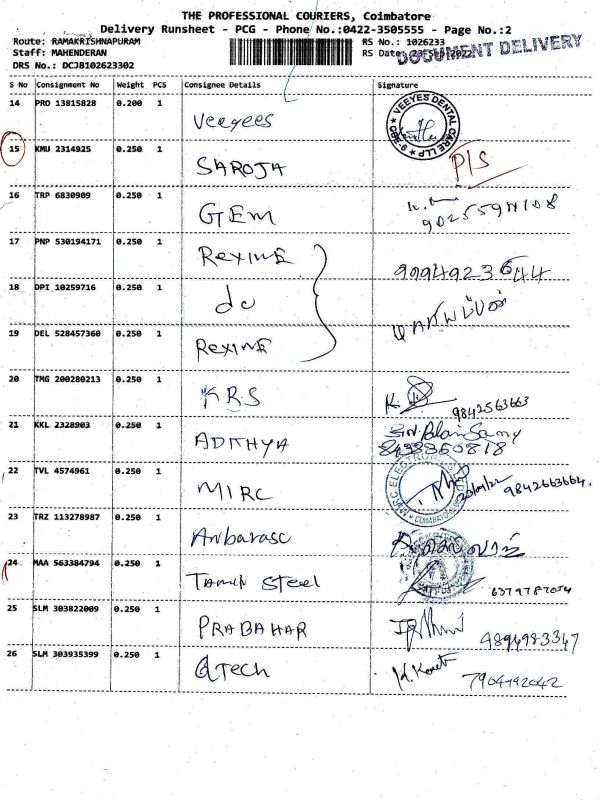 THE PROFESSIONAL COURIERS, Coimbatore
Delivery Runsheet - PCG - Phone No.:0422-3505555 - Page No.:2
Route: RAMAKRISHNAPURAM RS No.: 1026233
Staff: MAHENDERAN RS Date: 23-Sep-2022
DOCUMENT DELIVERY
DRS No.: DCJB102623302
S No Consignment No Weight PCS Consignee Details Signature
14 PRO 13815828 0.200 1 Veeyees
VEEYES DENTAL CARE LLP
15 KMU 2314925 0.250 1 SAROJA P/S
16 TRP 6830909 0.250 1 GEM
17 PNP 530194171 0.250 1 Rexine 9994923644
18 DPI 10259716 0.250 1 do
19 DEL 528457360 0.250 1 Rexine
20 TMG 200280213 0.250 1 KRS K. 9842563663
21 KKL 2328903 0.250 1 ADITHYA
22 TVL 4574961 0.250 1 MIRC 9842663664.
23 TRZ 113278987 0.250 1 Anbarasc
24 MAA 563384794 0.250 1 TAMIL Steel 6379787054
25 SLM 303822009 0.250 1 PRABAHAR 9894983347
26 SLM 303935399 0.250 1 QTech 7904792042